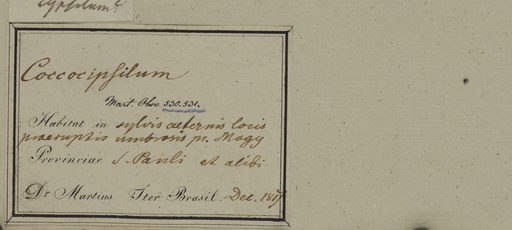 Coccocipsilum
Mart. Obs. 530.531.
Habitat in sylvis aeternis locis
praeruptis umbrosis pr. Mogy
Provinciae S. Pauli et alibi
Dr. Martius Iter Brasil. Dec. 1817